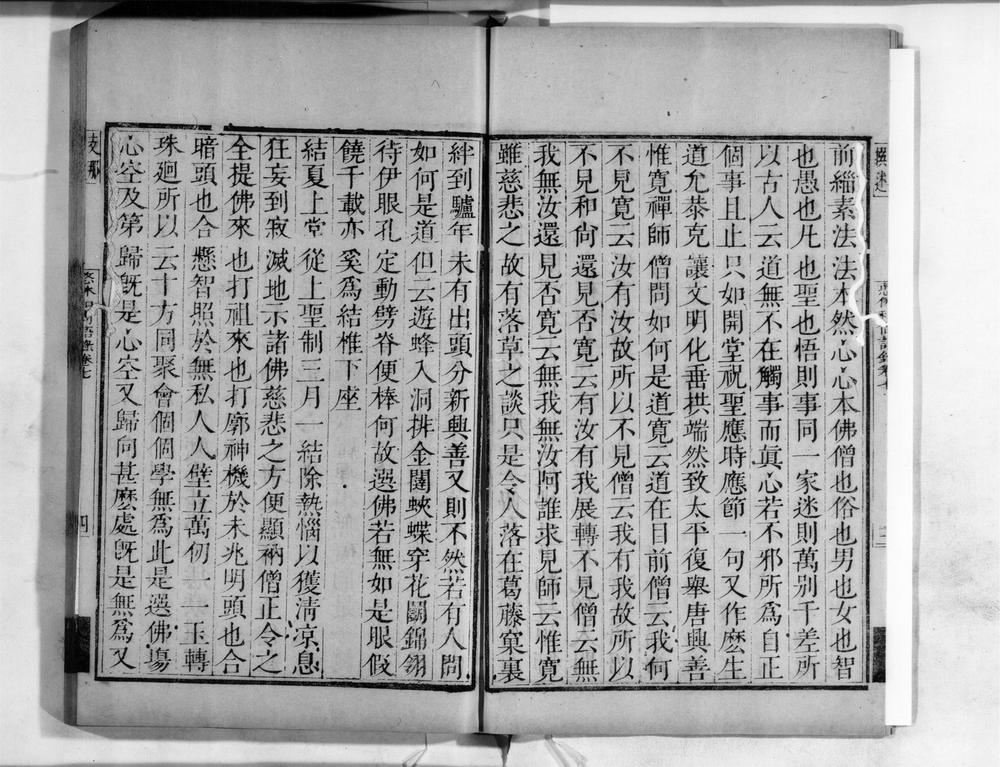 前緇素法法本然心心本佛僧也俗也男也女也智
也愚也凡也聖也悟則事同一家迷則萬別千差所
以古人云道無不在觸事而真心若不邪所為自正
個事且止只如開堂祝聖應時應節一句又作麽生
道允恭克讓文明化垂拱端然致太平復舉唐興善
惟寬禪師僧問如何是道寬云道在目前僧云我何
不見寬云汝有汝故所以不見僧云我有我故所以
不見和尚還見否寬云有汝有我展轉不見僧云無
我無汝還見否寬云無我無汝阿誰求見師云惟寬
雖慈悲之故有落草之談只是令人落在葛藤窠裏
絆到驢年未有出頭分新興善又則不然若有人問
如何是道但云遊蜂入洞排金闥蛺蝶穿花鬭錦翎
待伊眼孔定動劈脊便棒何故選佛若無如是眼假
饒千載亦奚為結椎下座
結夏上堂從上聖制三月一結除熱惱以獲清凉息
狂妄到寂滅地示諸佛慈悲之方便顯衲僧正令之
全提佛來也打祖來也打廓神機於未兆明頭也合
暗頭也合懸智照於無私人人壁立萬仞一一玉轉
珠迴所以云十方同聚會個個學無為此是選佛場
心空及第歸既是心空又歸向甚麽處既是無為又
四